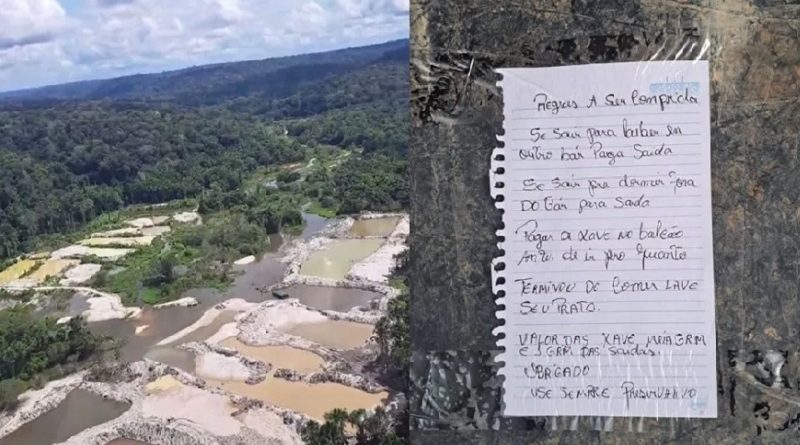 Regras A Ser Comprida
Se sair para beber em
outro bar Paga Saida
Se sair pra dormir fora
Do bar para Saida
Pagar a xave no balcão
Antes de ir pro quarto
TERMINOU DE COMER LAVE
SEU PRATO.
VALOR DAS XAVE MEIA GRM
E GRM DAS Saidas
OBRIGADO
USE SEMPRE